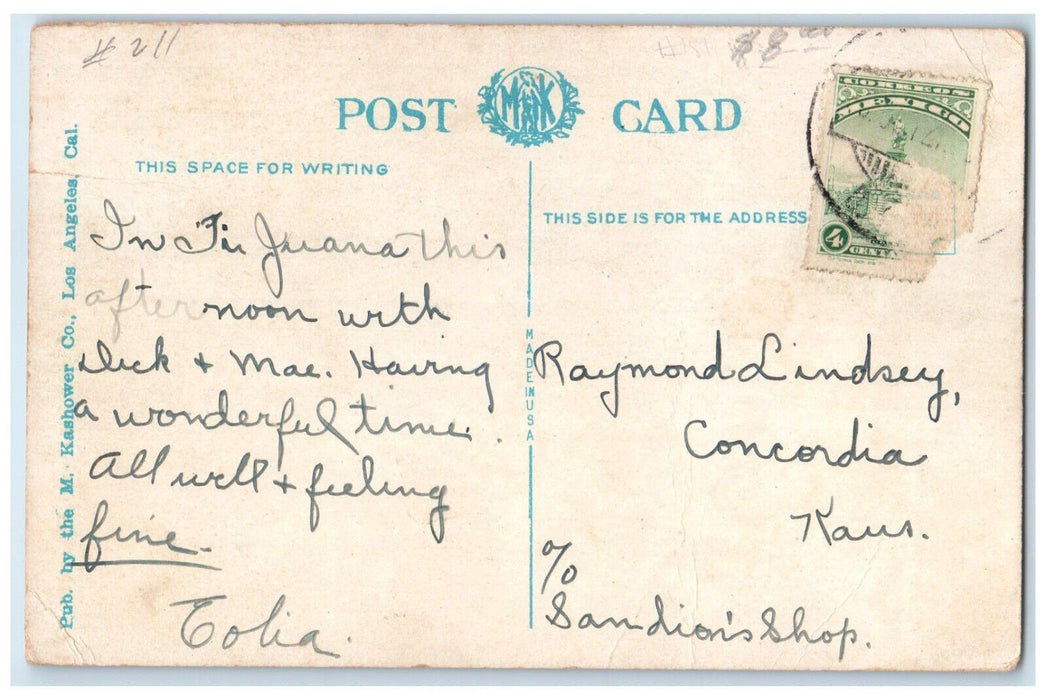 # 211
$8
POST MK CARD
THIS SPACE FOR WRITING
THIS SIDE IS FOR THE ADDRESS
CORREOS
MEXICO
4
CENTAVOS
In Tia Juana this
afternoon with
Dick + Mae. Having
a wonderful time.
All well + feeling
fine.
Eolia.
MADE IN USA
Raymond Lindsey,
Concordia
Kans.
%
Shop.
Pub. by the M. Kashower Co., Los Angeles, Cal.